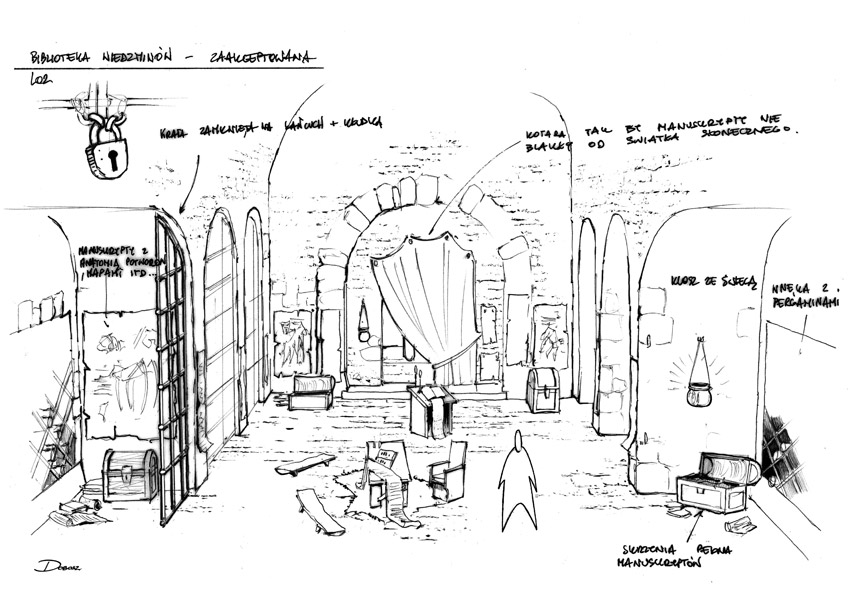 BIBLIOTEKA WIEDZMINÓW – ZAAKCEPTOWANA
LOZ
KRATA ZAMKNIĘTA NA ŁAŃCUCH + KŁÓDKA
KOTARA TAK BY MANUSKRYPTY NIE
BLAKŁY OD ŚWIATŁA SŁONECZNEGO.
MANUSKRYPTY Z
ANATOMIĄ POTWORÓW
MAPAMI ITD...
KLOSZ ZE ŚWIECĄ
WNĘKA Z
PERGAMINAMI
SKRZYNIA PEŁNA
MANUSKRYPTÓW